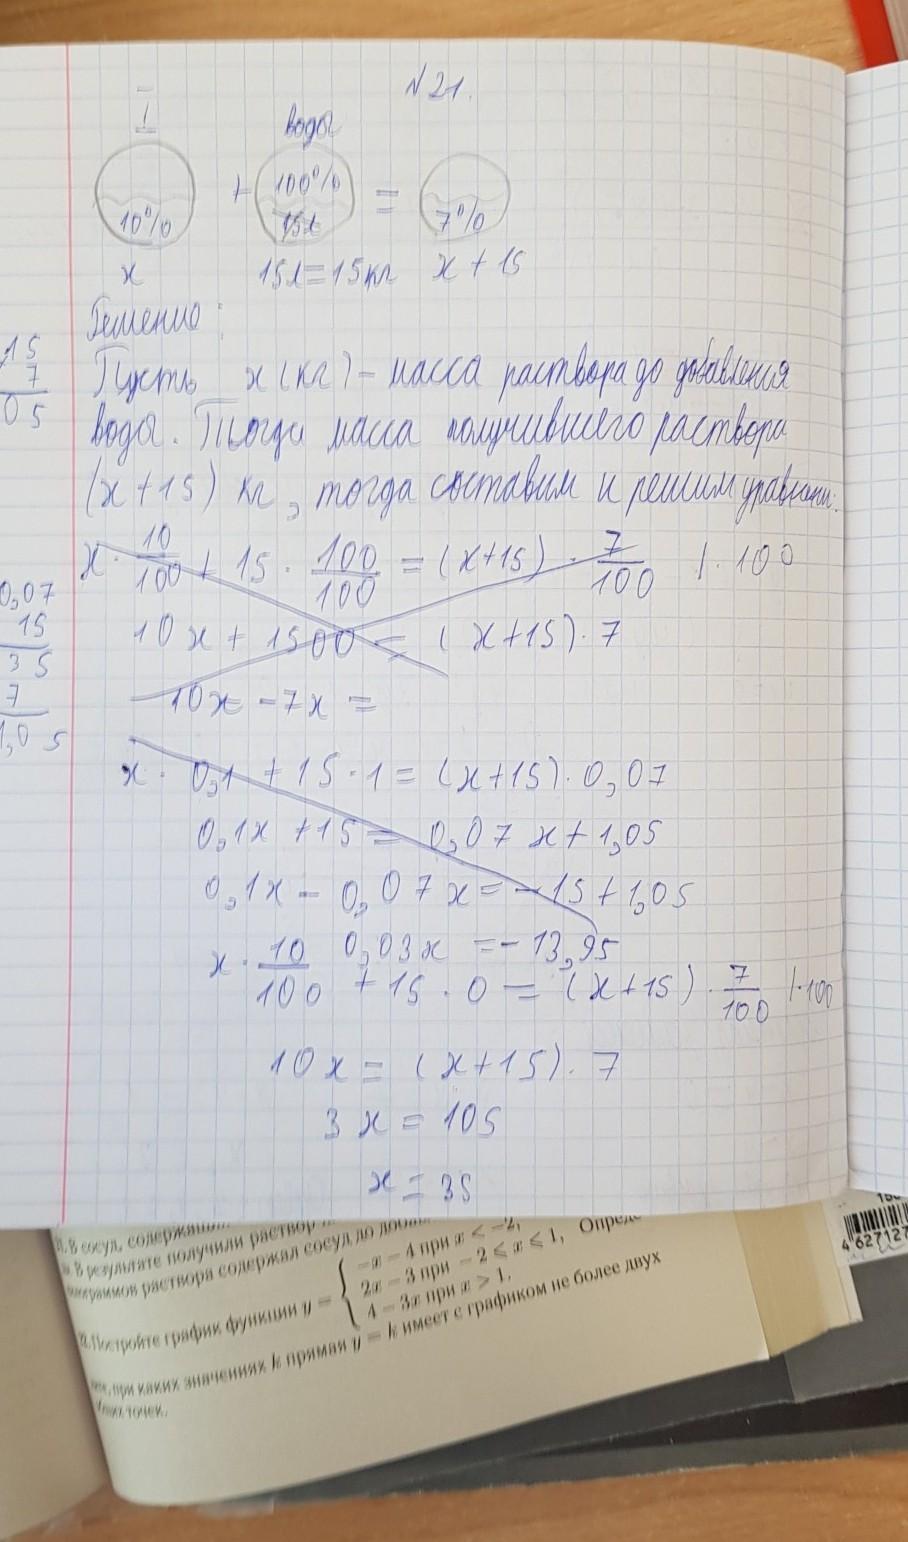 N 21.
1
воды
10% + 100% = 7%
15л
x 15л=15кг x + 15
Решение:
Пусть x(кг) – масса раствора до добавления
воды. Тогда масса получившего раствора
(x+15) кг, тогда составим и решим
x · 10/100 + 15 · 100/100 = (x+15) · 7/100 | · 100
10x + 1500 = (x+15) · 7
10x – 7x =
x · 0,1 + 15 · 1 = (x+15) · 0,07
0,1x + 15 = 0,07x + 1,05
0,1x – 0,07x = –15 + 1,05
0,03x = – 13,95
x · 10/100 + 15 · 0 = (x+15) · 7/100 | · 100
10x = (x+15) · 7
3x = 105
x = 35
15
7
05
0,07
15
35
7
1,05
В сосуд,
В результате получили раствор
раствора содержал сосуд до
Постройте график функции y = { –x – 4 при x < –2,
2x – 3 при –2 ⩽ x ⩽ 1,
4 – 3x при x > 1.
при каких значениях k прямая y = k имеет с графиком не более двух
точек.
4 627127